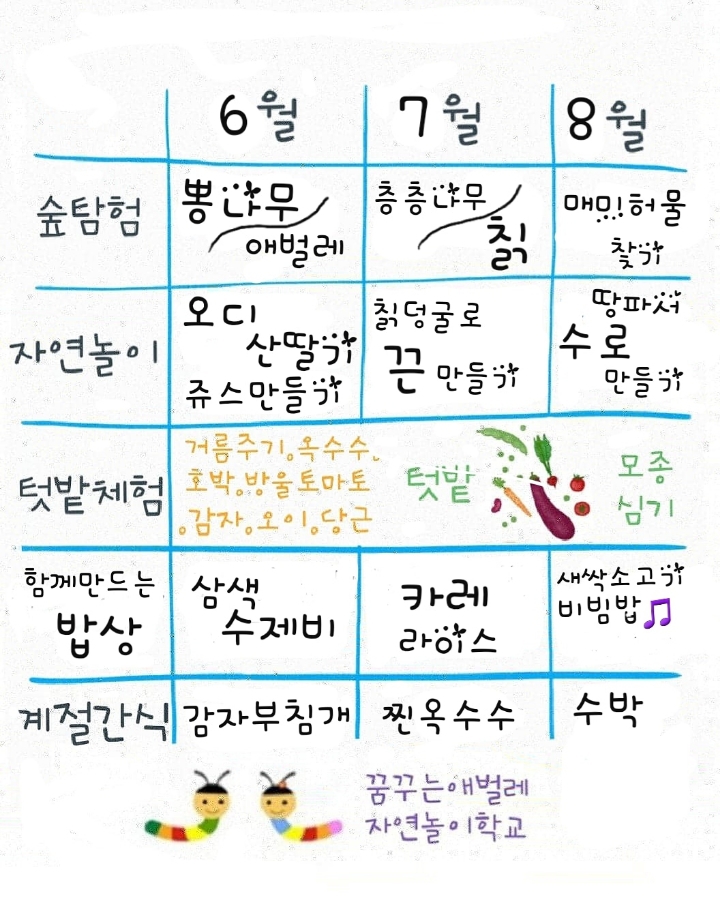 6월 7월 8월
숲탐험
뽕나무
애벌레
층층나무
칡
매미허물
찾기
자연놀이
오디
산딸기
쥬스만들기
칡덩굴로
끈 만들기
땅파서
수로
만들기
텃밭체험
거름주기.옥수수.
호박.방울토마토
.감자.오이.당근
텃밭
모종
심기
함께만드는
밥상
삼색
수제비
카레
라이스
새싹소고기
비빔밥
계절간식 감자부침개 찐옥수수 수박
꿈꾸는애벌레
자연놀이학교